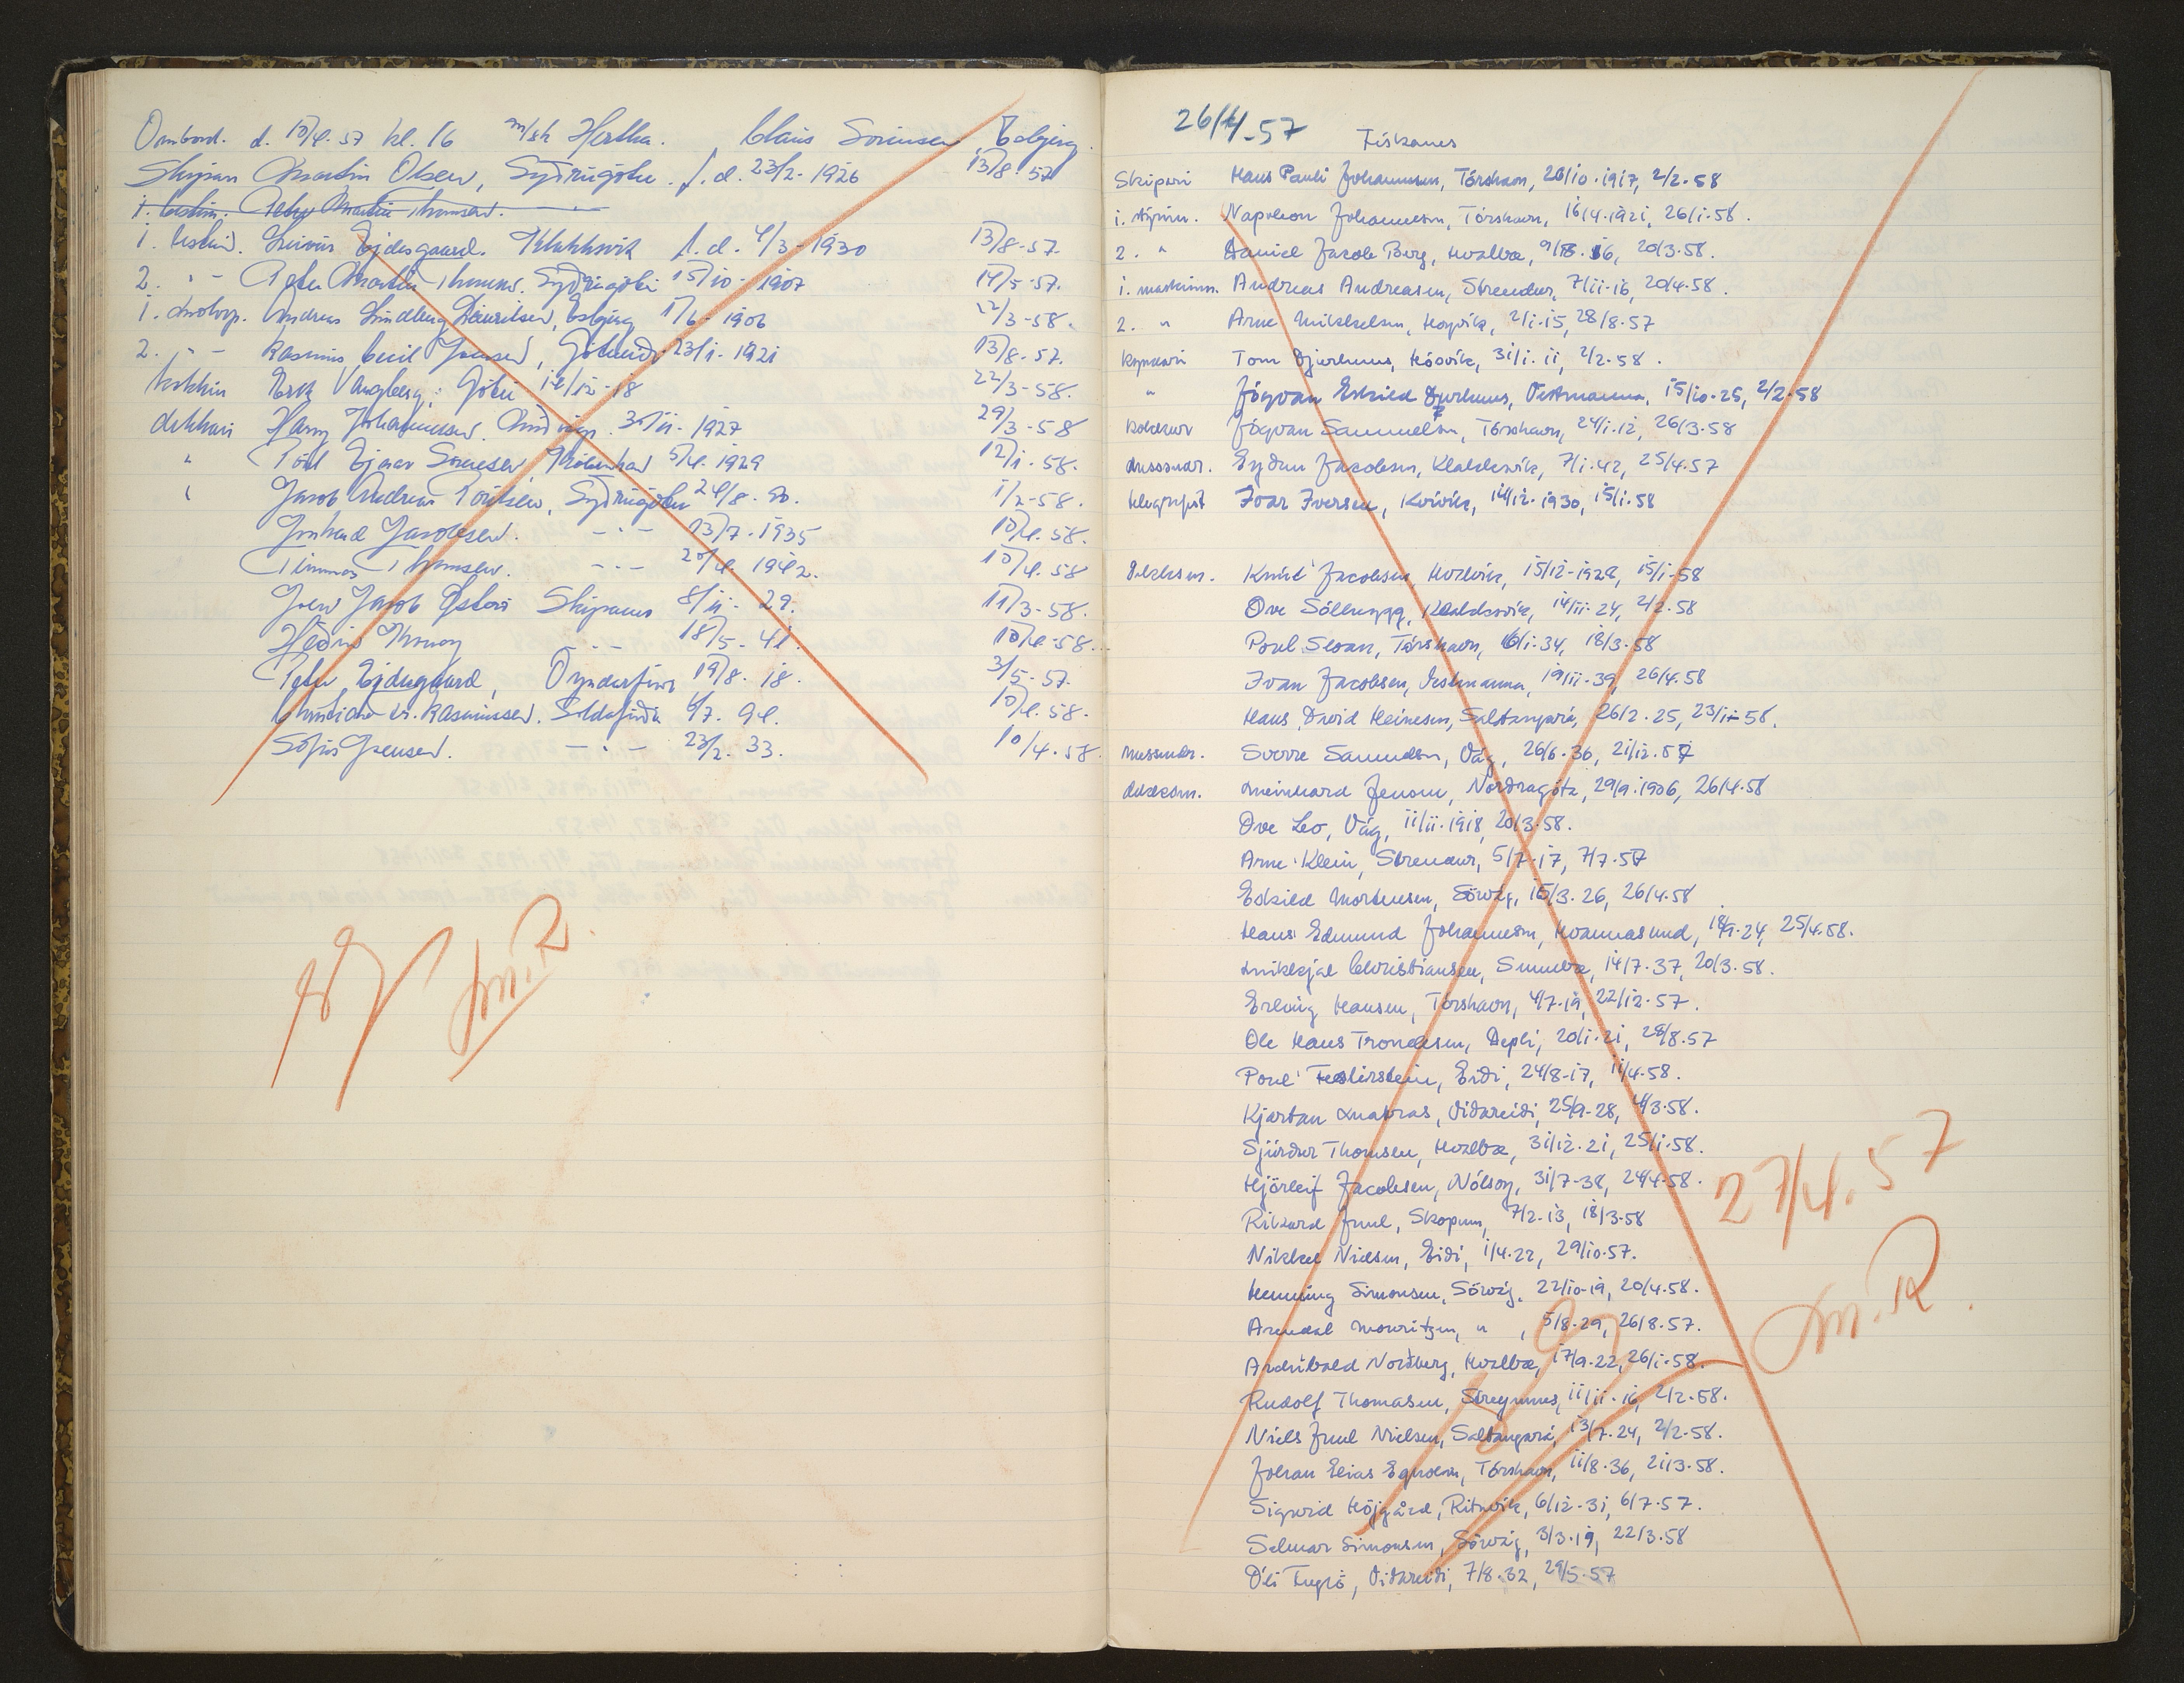 Ombord. d. 10/4. 57 kl. 16 m/sk Hertha. Claus Sørensen, Esbjerg.
Skipari Martin Olsen, Sydrugøtu. f. d. 23/2 - 1926 13/8 57
1. bestm. Peter Martin Thomsen. - " -
1. bestm. Ejdesgaard. Klakksvik f. d. 4/3 - 1930 13/8 - 57.
2. - " - Peter Martin Thomsen. Sydrugøtu 15/10 - 1907 14/5 - 57.
1. motorp. Andreas Lindberg Lauritsen, Esbjerg 1/6 - 1906 22/3 - 58.
2. - " - Rasmus Emil Joensen, 23/1 - 1921 13/8 - 57.
kokkur Erik Vangberg, Gøtu 14/12 - 18 22/3 - 58.
dekkari Harry Johannesen. 30/11 - 1927 29/3 - 58
" Poul Ejnar Sørensen, København 5/4. 1929 12/1 - 58.
" Jacob Andreas Poulsen, Sydrugøtu 24/8 - 90. 1/2 - 58.
Jacobsen. - " - 13/7 - 1935 10/4. 58.
Thomsen. - " - 20/4. 1942. 10/4. 58
Jacob Skipanes 8/11 - 29. 11/3 - 58.
Hedin - " - 18/5 - 41. 10/4 - 58.
Peter Ejdesgaard, Oyndarfirdi 19/8. 18. 3/5 - 57.
Rasmussen. Soldafirdi 6/7. 94. 10/4. 58.
Sofus Joensen. - " - 23/2. 33. 10/4. 58
M.R.
26/4 - 57
Fiskanes
Skipari Hans Pauli Johannesen, Tórshavn, 20/10. 1917, 2/2. 58
1. stýrim. Napoleon Johannesen, Tórshavn, 16/4. 1921, 26/1. 58.
2. " Daniel Jacob Berg, Hvalba, 9/8. 16, 20/3. 58.
1. maskinm. Andreas Andreasen, Strendur, 7/11. 16, 20/4. 58.
2. " Arne Mikkelsen, Hoyvík, 2/1. 15, 28/8. 57
kyndari Tom Djurhuus, Hósvík, 31/1. 11, 2/2. 58.
" Jógvan Eskild Djurhuus, Vestmanna, 15/10. 25, 2/2. 58
Kokkur Jógvan Samuelsen, Tórshavn, 24/1. 12, 26/3. 58
messudr. Eydun Jacobsen, Klaksvík, 7/1. 42, 25/4. 57
telegrafist Ivar Iversen, Kvívík, 14/12. 1930, 15/1. 58
dekksm. Knút Jacobsen, Hvalvík, 15/12 - 1928, 15/1 - 58
Ove Sólheygg, Klaksvík, 14/11. 24, 2/2. 58
Poul Sloan, Tórshavn, 6/1. 34, 18/3. 58
Ivan Jacobsen, Vestmanna, 19/11. 39, 26/4. 58
Hans David Heinesen, Saltangará, 26/2. 25, 23/1 - 58.
messudr. Sverre Samuelsen, Vág, 26/6. 36, 21/12. 57
dekksm. Meinhard Jensen, Nordragøta, 29/9. 1906, 26/4. 58
Ove Leo, Vág, 11/11. 1918, 20/3. 58.
Arne Klein, Strendur, 5/7. 17, 7/7. 57
Eskild Mortensen, Sørvág, 15/3. 26, 26/4. 58
Hans Edmund Johannesen, Hvannasund, 18/9. 24, 25/4. 58.
Mikkjal Christiansen, Sumba, 14/7. 37, 20/3. 58.
Erling Hansen, Tórshavn, 4/7. 19, 22/12. 57.
Ole Hans Trondesen, Depli, 20/1. 21, 28/8. 57
Poul Festirstein, Eidi, 24/8 - 17, 11/4. 58.
Kjartan Matras, Vidareidi, 25/9 - 28, 4/3. 58.
Sjúrdur Thomsen, Hvalba, 31/12. 21, 25/1. 58.
Hjörleif Jacobsen, Nólsoy, 31/7 - 38, 24/4. 58.
Rikard Juul, Skopun, 7/2. 13, 18/3. 58
Nikkel Nielsen, Eidi, 1/4. 22, 29/10. 57.
Henning Simonsen, Sörvág, 22/10 - 19, 20/4. 58.
Arendal Mouritzen, " , 5/8. 29, 26/8. 57.
Archibald Nordberg, Hvalba, 17/9. 22, 26/1. 58.
Rudolf Thomasen, Streymnes, 11/11. 16, 2/2. 58.
Niels Juul Nielsen, Saltangará, 13/7. 24, 2/2. 58.
Johan Elias Egholm, Tórshavn, 11/8. 36, 21/3. 58.
Sigurd Höjgård, Ritvík, 6/12. 31, 6/7. 57.
Selmar Simonsen, Sörvág, 3/3. 19, 22/3. 58
Óli Fuglö, Vidareidi, 7/8. 32, 29/5. 57
27/4. 57
M.R.